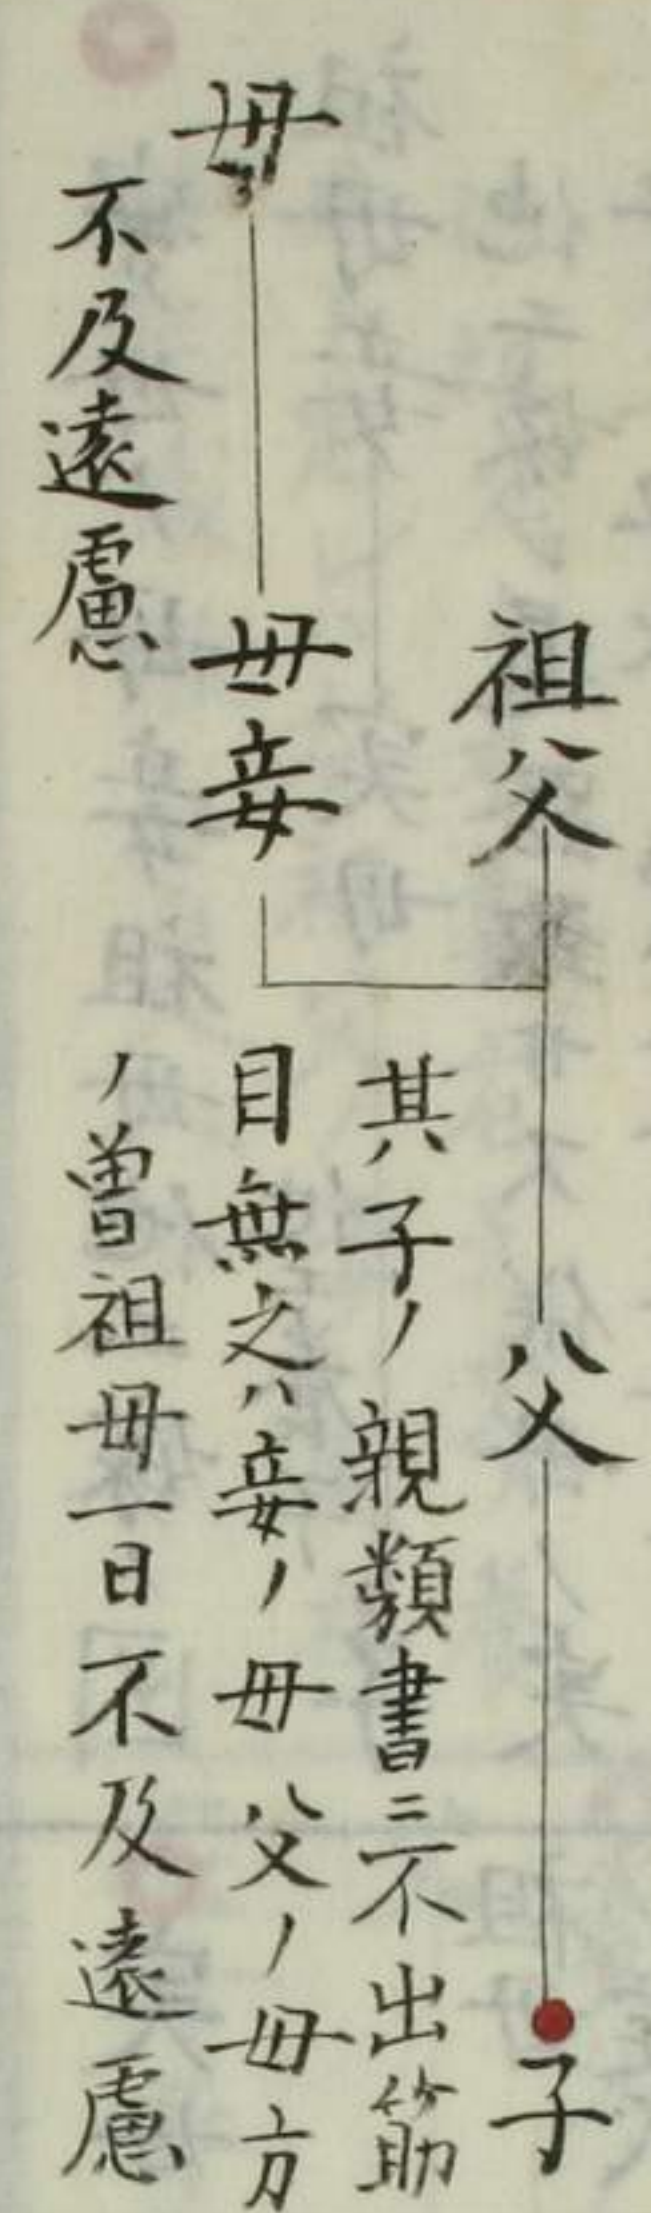 祖父
父
子
母
母妾
不及遠慮
其子ノ親類書ニ不出筋
目無之ハ妾ノ母父ノ母方
ノ曽祖母一日不及遠慮